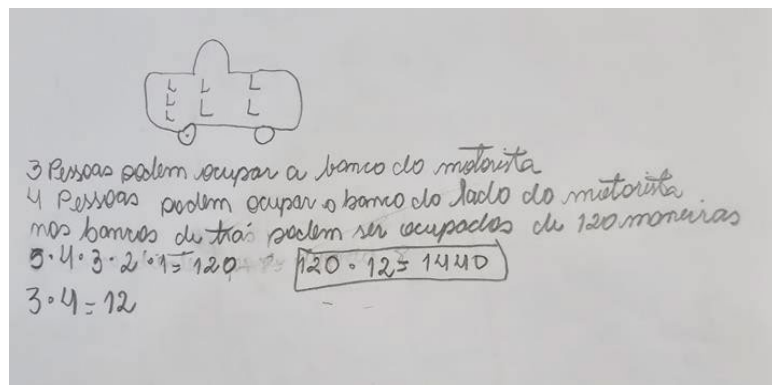 3 Pessoas podem ocupar a banco do motorista
4 Pessoas podem ocupar o banco do lado do motorista
nos bancos de trás podem ser ocupados de 120 maneiras
5·4·3·2·1=120 120·12=1440
3·4=12